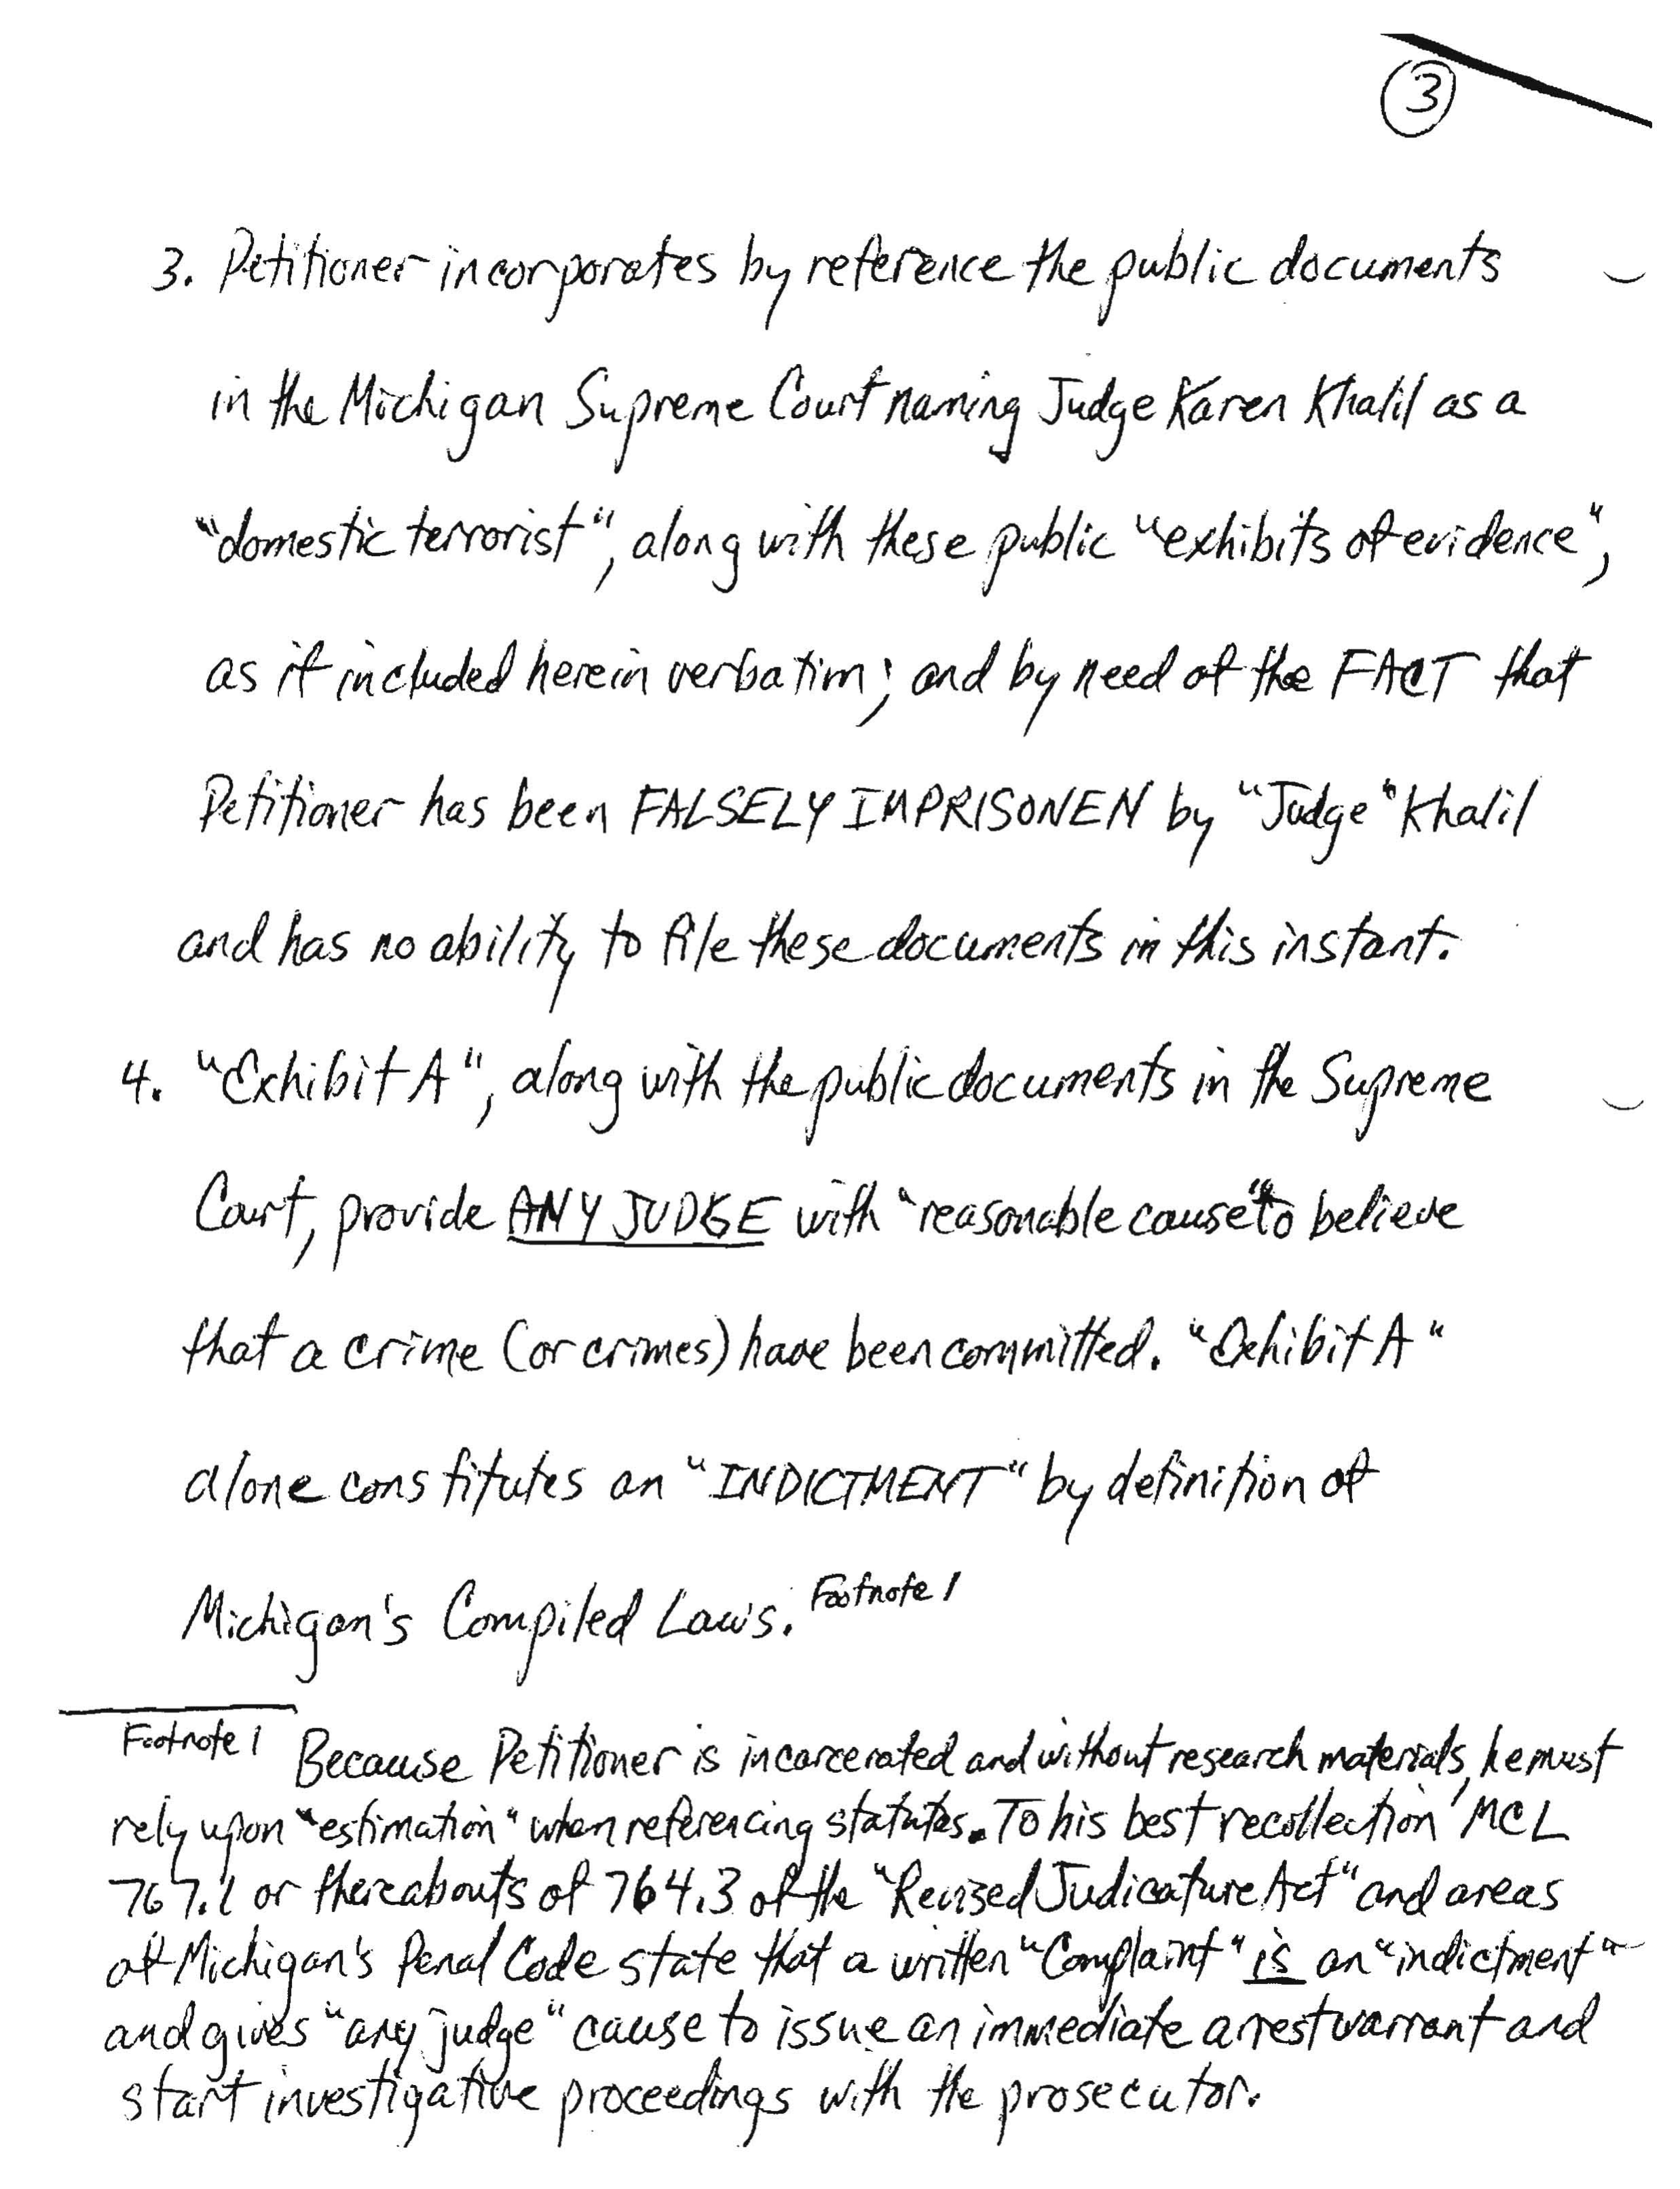 3
3. Petitioner incorporates by reference the public documents
in the Michigan Supreme Court naming Judge Karen Khalil as a
"domestic terrorist", along with these public "exhibits of evidence",
as if included herein verbatim; and by need of the FACT that
Petitioner has been FALSELY IMPRISONEN by "Judge" Khalil
and has no ability to file these documents in this instant.
4. "Exhibit A", along with the public documents in the Supreme
Court, provide ANY JUDGE with "reasonable cause" to believe
that a crime (or crimes) have been committed. "Exhibit A"
alone constitutes an "INDICTMENT" by definition of
Michigan's Compiled Laws. Footnote 1
Footnote 1 Because Petitioner is incarcerated and without research materials, he must
rely upon "estimation" when referencing statutes. To his best recollection MCL
767.1 or thereabouts of 764.3 of the "Revized Judicature Act" and areas
of Michigan's Penal Code state that a written "Complaint" is an "indictment"
and gives "any judge" cause to issue an immediate arrest warrant and
start investigative proceedings with the prosecutor.